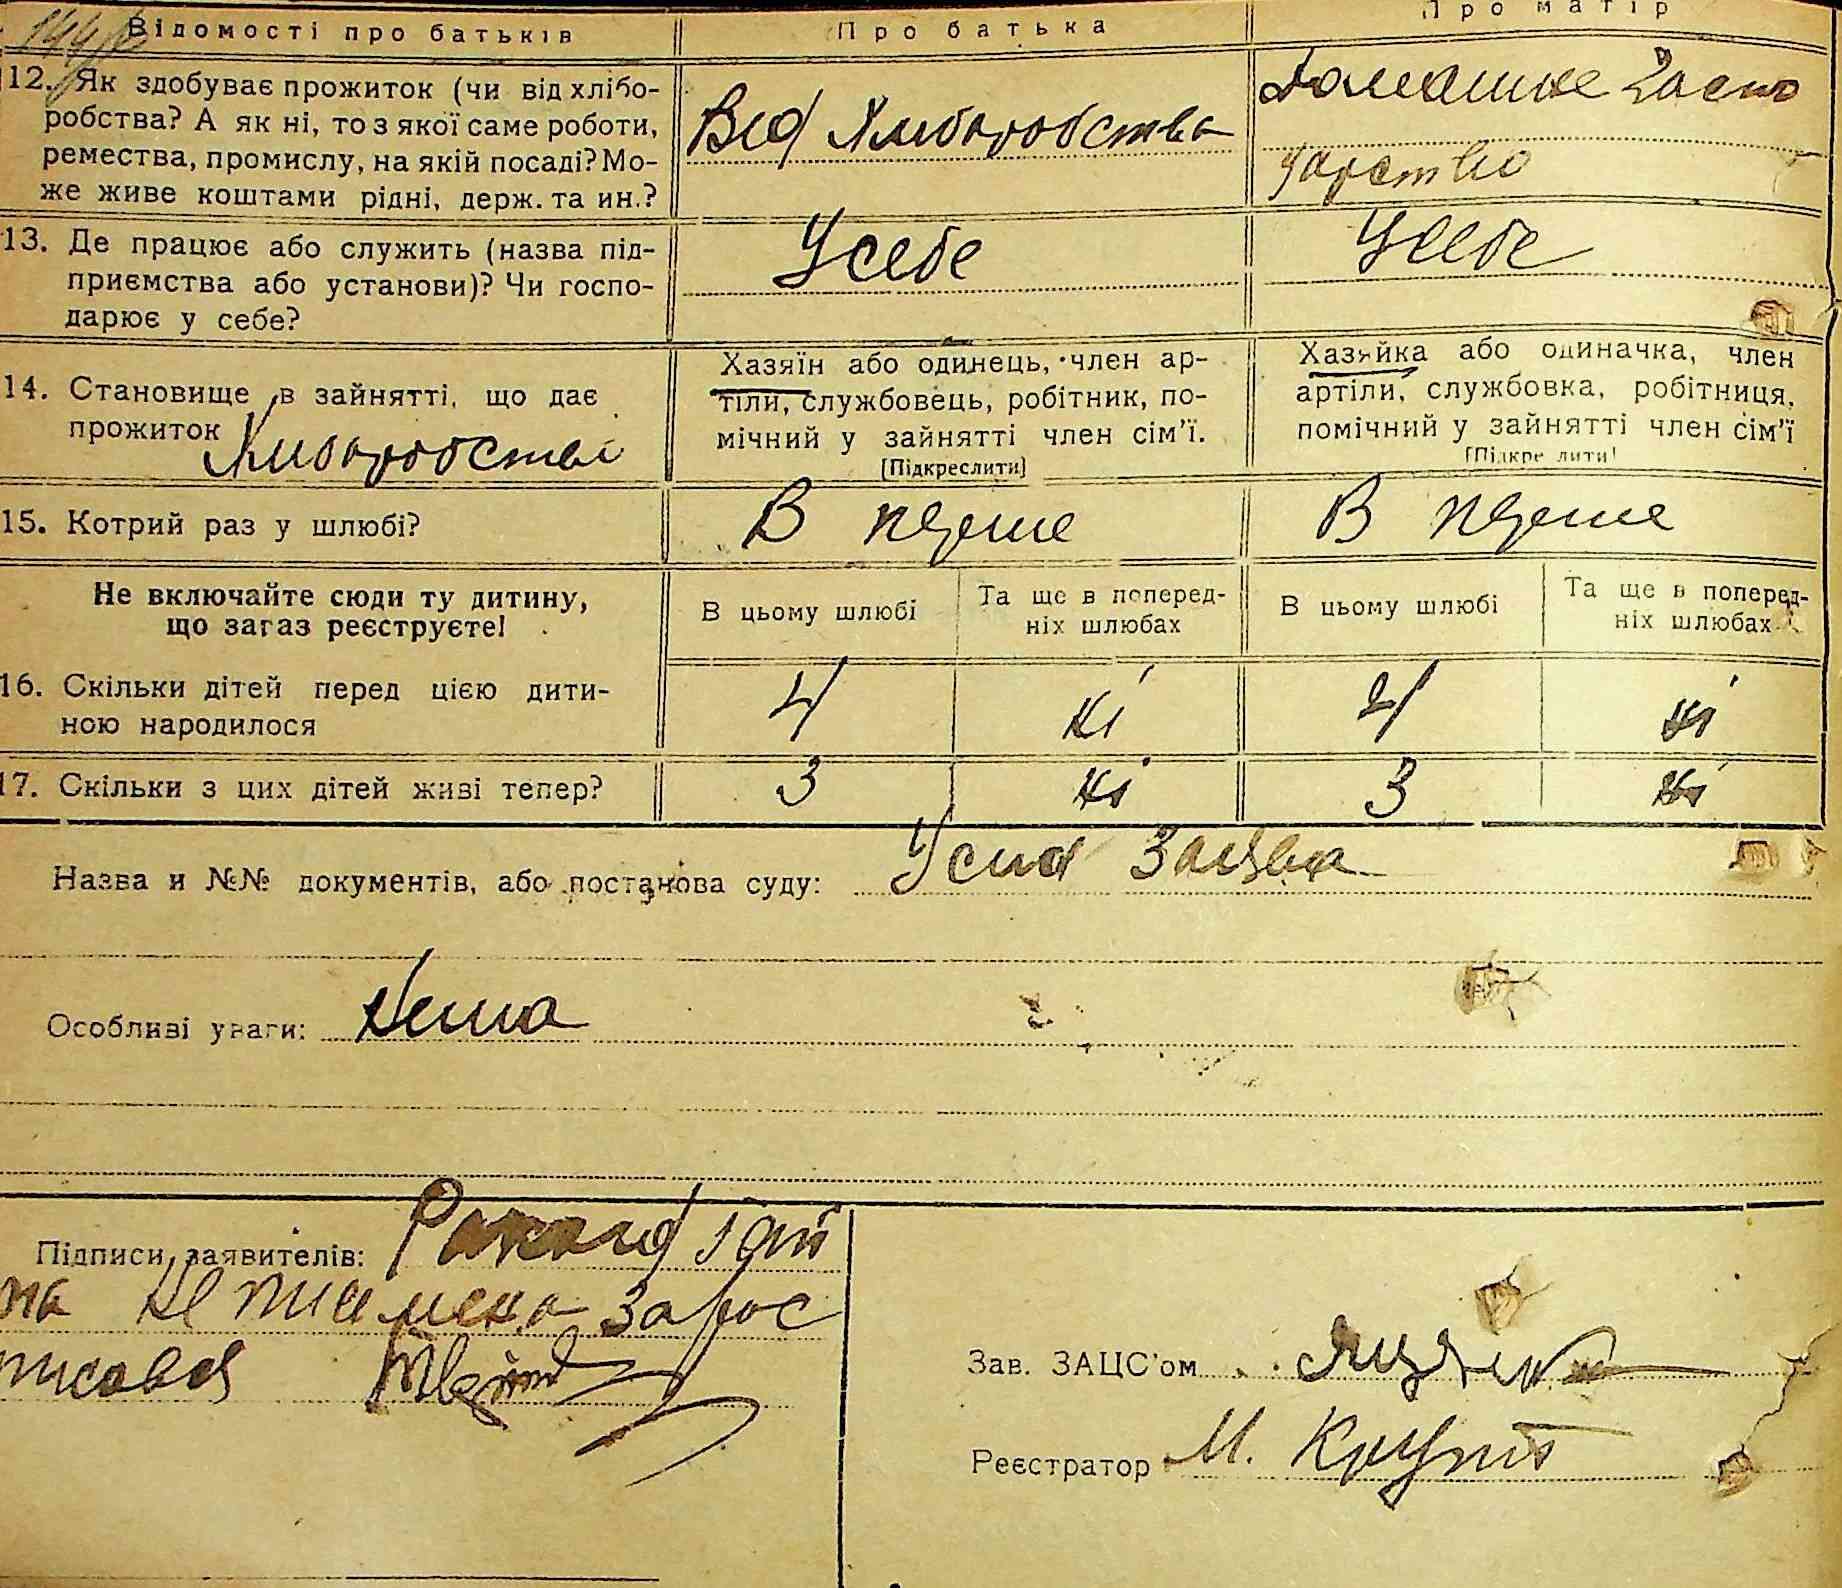 Відомості про батьків
Про батька
Про матір
12. Як здобуває прожиток (чи від хлібо-
робства? А як ні, то з якої саме роботи,
ремества, промислу, на якій посаді? Мо-
же живе коштами рідні, держ. та ин.?
Від Хлиборобства
Домашнє Госпо
дарство
13. Де працює або служить (назва під-
приємства або установи)? Чи госпо-
дарює у себе?
У себе
У себе
14. Становище в зайнятті, що дає
прожиток Хлиборобстві
Хазяїн або одинець, член ар-
тіли, службовець, робітник, по-
мічний у зайнятті член сім'ї.
[Підкреслити]
Хазяйка або одиначка, член
артіли, службовка, робітниця,
помічний у зайнятті член сім'ї
[Підкреслити]
15. Котрий раз у шлюбі?
В перше
В перше
Не включайте сюди ту дитину,
що загаз реєструєте!
В цьому шлюбі
Та ще в поперед-
ніх шлюбах
В цьому шлюбі
Та ще в поперед-
ніх шлюбах
16. Скільки дітей перед цією дити-
ною народилося
4 ні 4 ні
17. Скільки з цих дітей живі тепер?
3 ні 3 ні
Назва и №№ документів, або постанова суду: Усна Заява
Особливі уваги: Нема
Підписи заявителів:
на не письмена за
писався
Зав. ЗАЦС'ом
Реєстратор М.